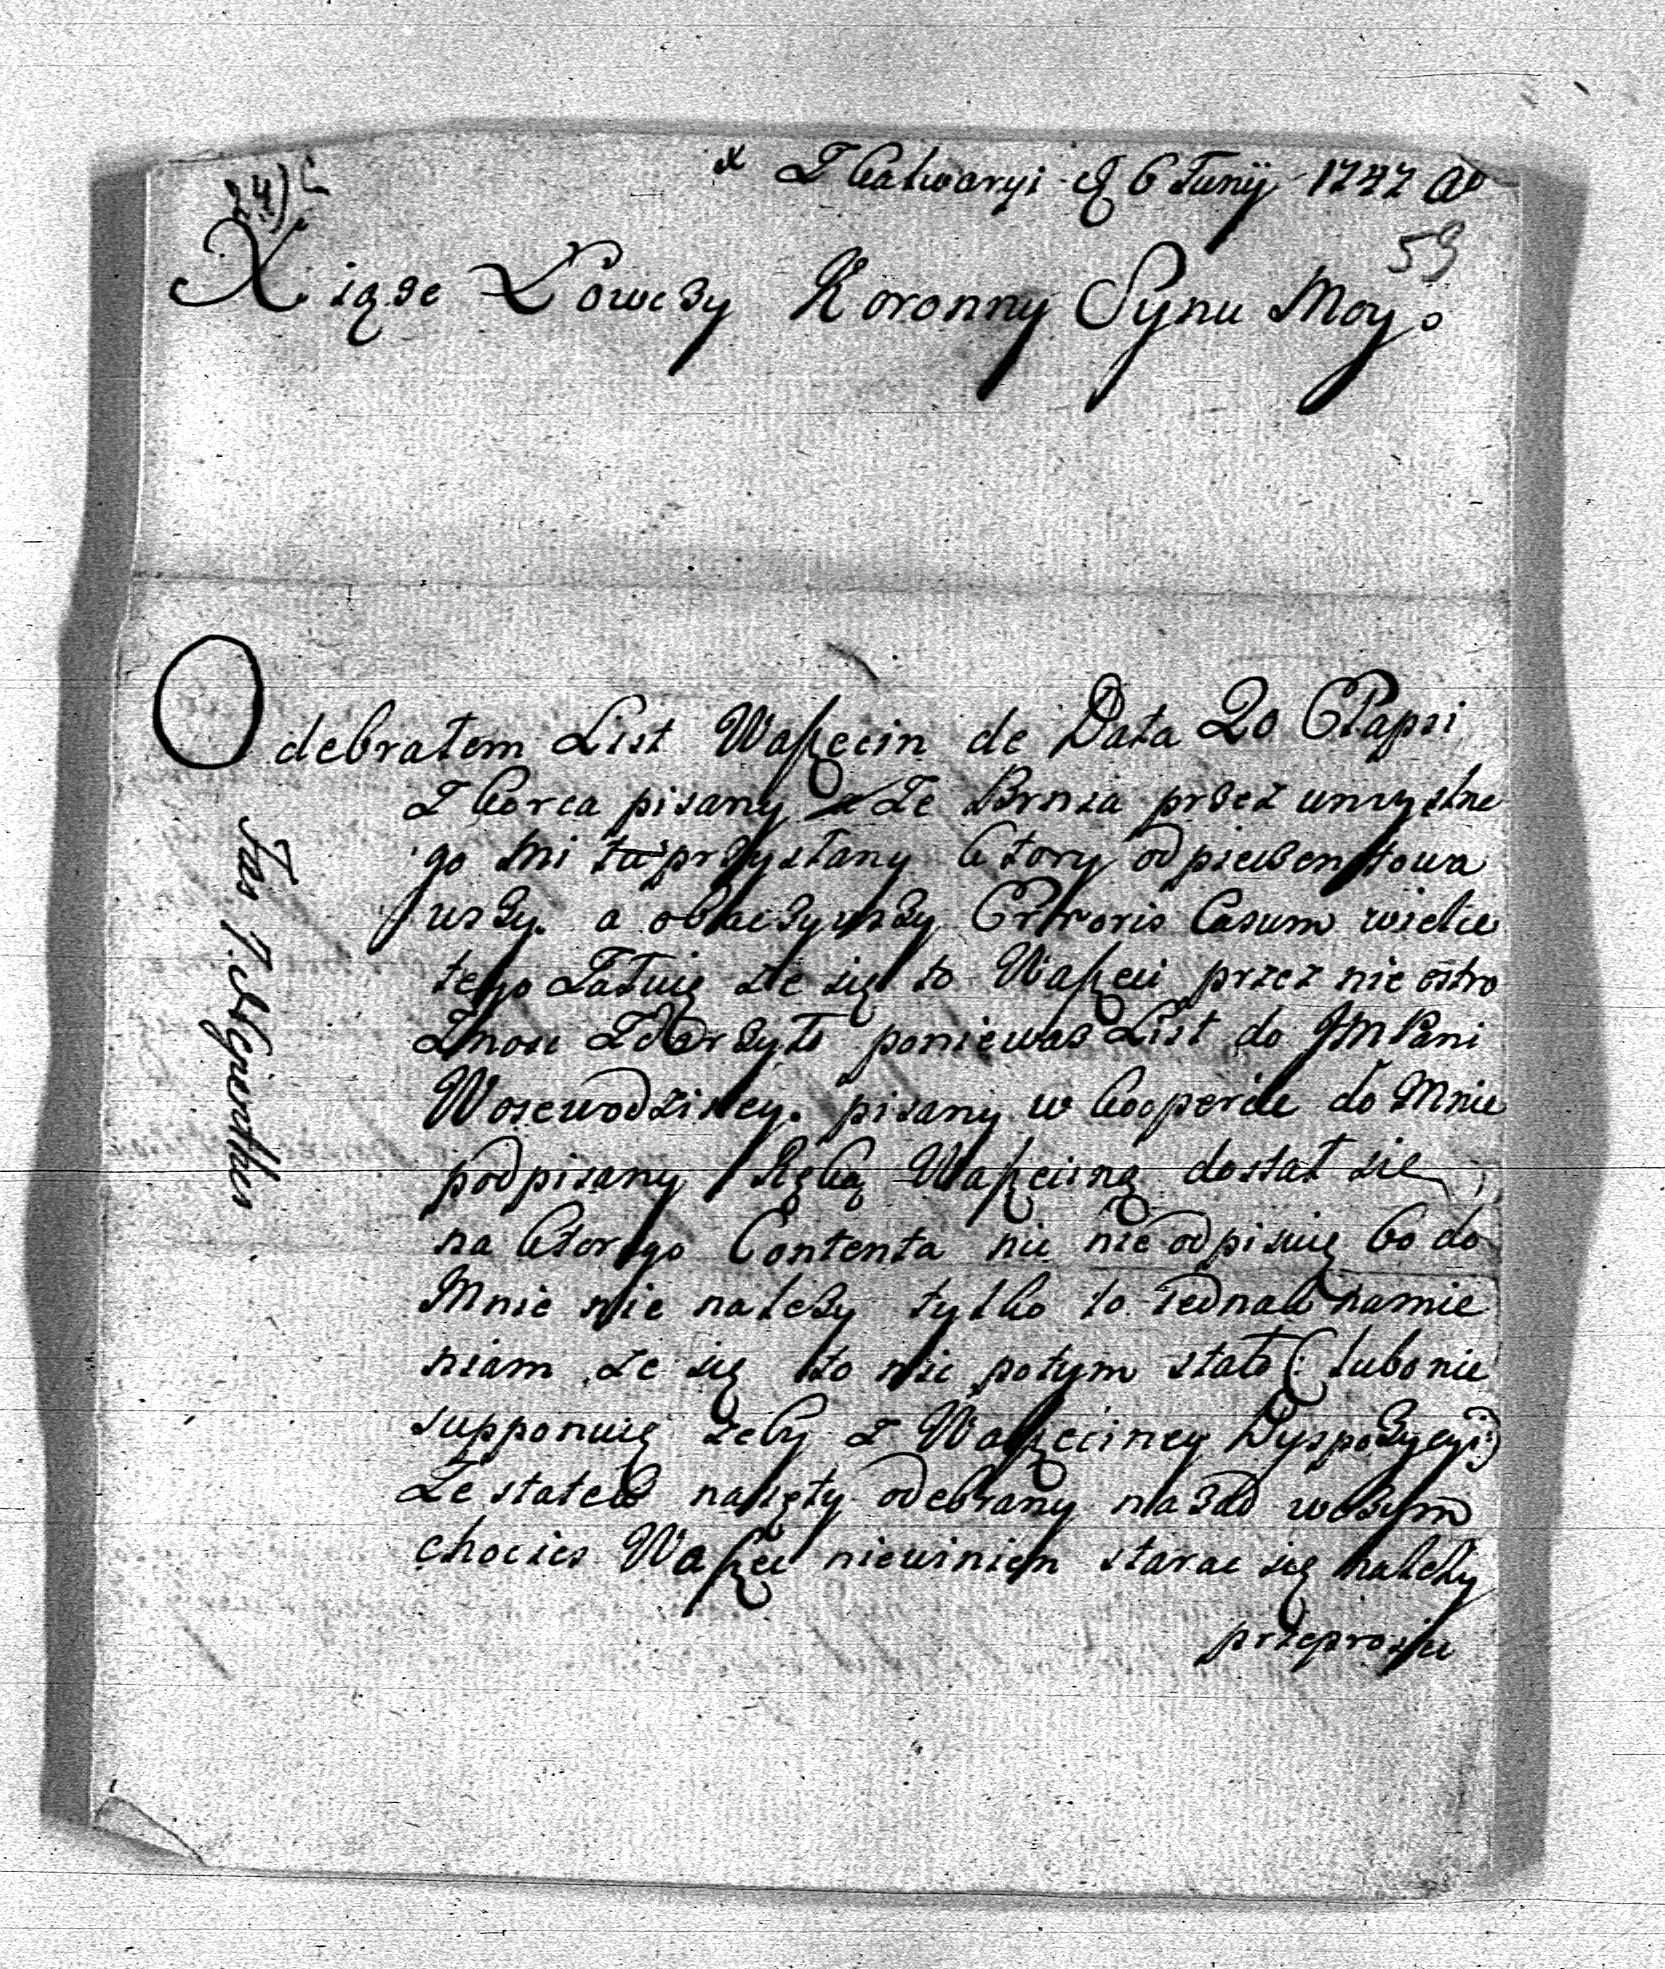 24)
x Z Calwaryi d 6 Junÿ 1747 Ao
59
Xiąze Łowczy Koronny Synu Moy.
Odebrałem List Waszecin de Data 20 Praesi
Z Korca pisany Ze Brnia przez umyslne
go mi przysłany ktory odpieczentowa
wszy. a obaczywszy Erroris Casum wielce
tego Załuię ze się to Waszeci przez nieostro
Znosc Zdarzyło poniewaz List do JM Pani
Woiewodziney. pisany w kopercie do Mnie
podpisany Ręką Waszeciną dostał się
na ktorego Contenta nic nie odpisuię bo do
Mnie nie nalezy tylko to Jednak namie
niam ze się to nic potym stało (: lubo nie
supponuię zeby z Waszeciney Dyspozycyi:)
Ze statek naięty odebrany nazad w czym
chocies Waszeć niewinien starac się nalezy
przeprosic